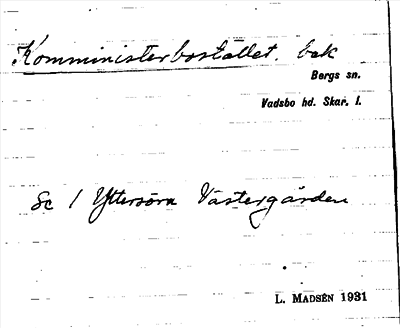 Komministerbostället. bak
Bergs sn.
Vadsbo hd. Skar. l.
Se / Yttersörn Västergården
L. MADSÉN 1931